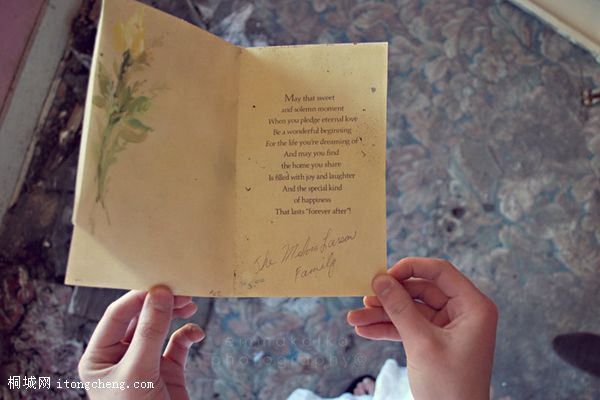 May that sweet
and solemn moment
When you pledge eternal love
Be a wonderful beginning
For the life you're dreaming of
And may you find
the home you share
Is filled with joy and laughter
And the special kind
of happiness
That lasts "forever after"!
The Larson
Family
5.00
simmakoika
photography©
桐城网 itongcheng.com